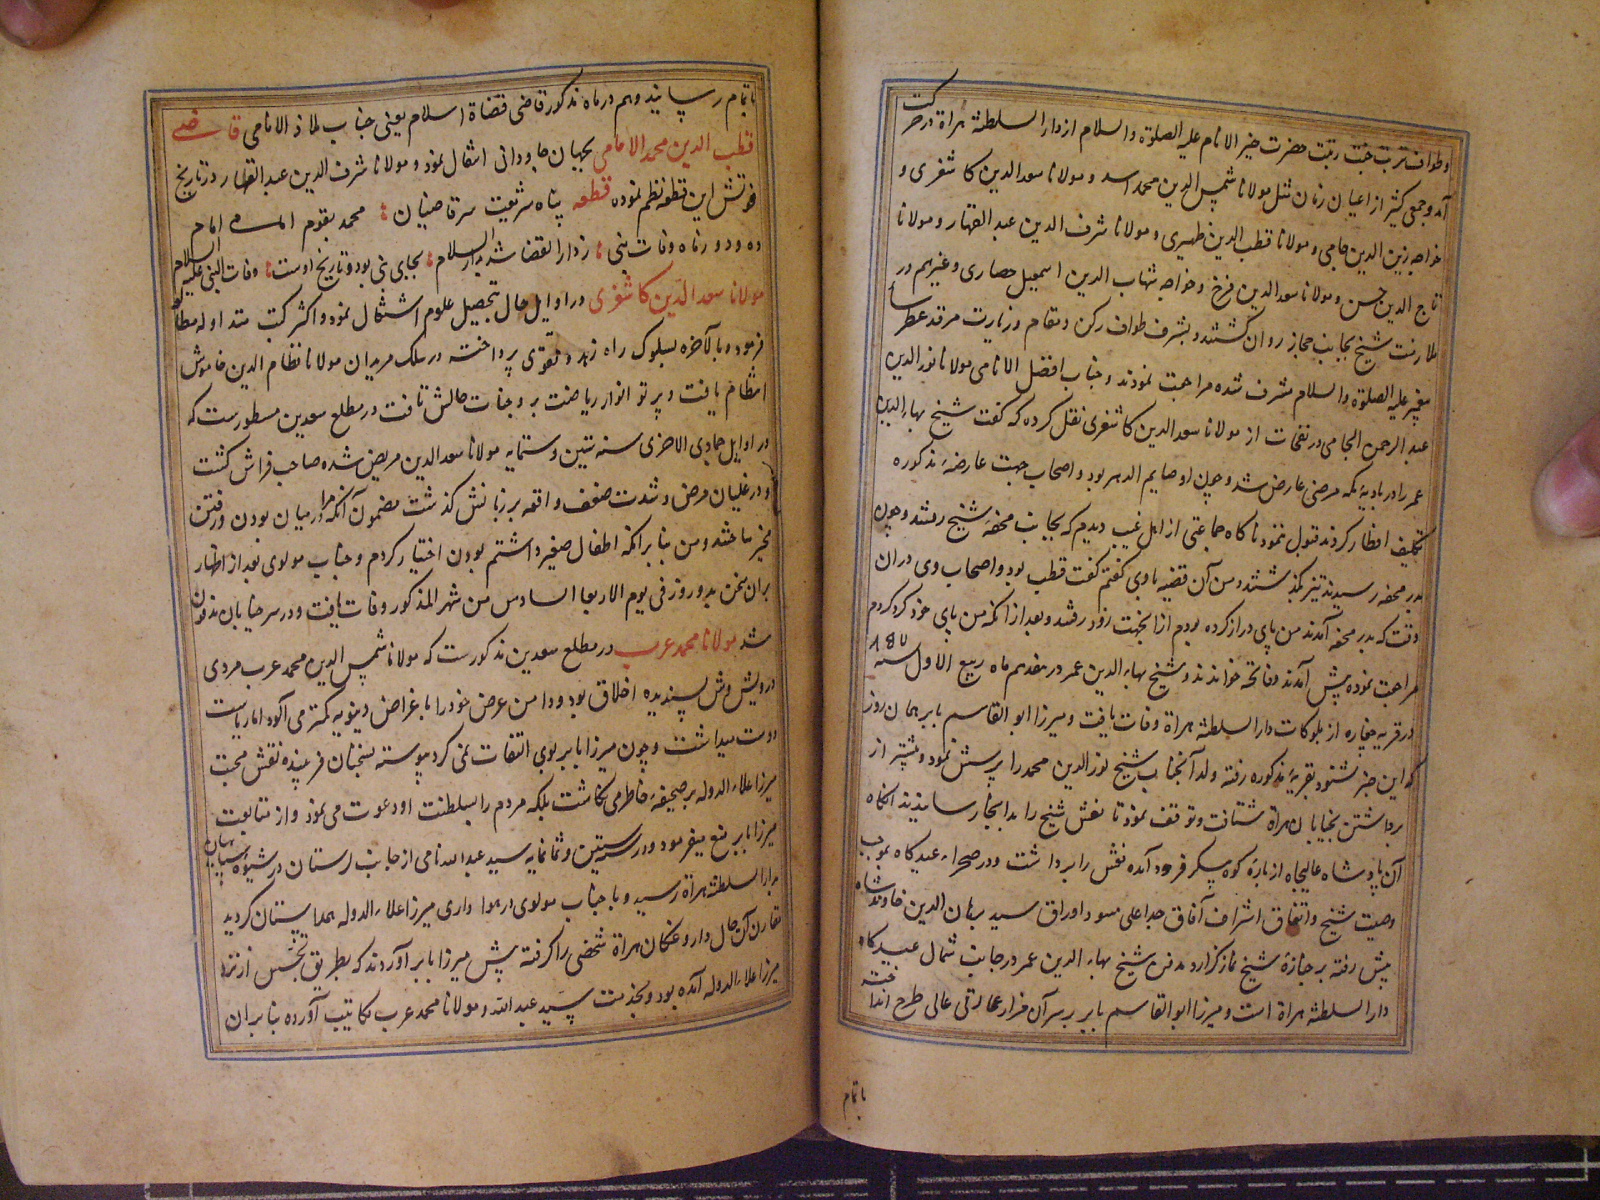 وطواف تربت جنت رتبت حضرت خیر الانام علیه الصلوة والسلام از دار السلطنه هراة در حرکت
آمد و جمعی کثیر از اعیان زمان مثل مولانا شمس الدین محمد اسد و مولانا سعد الدین کاشغری و
خواجه زین الدین جامی و مولانا قطب الدین ظهیری و مولانا شرف الدین عبد القهار و مولانا
تاج الدین حسن و مولانا سعد الدین فرخ و خواجه شهاب الدین اسمعیل حصاری و غیرهم در
ملازمت شیخ بجانب حجاز روان کشتند و بشرف طواف رکن و مقام و زیارت مرقد عطرسا
پیغمبر علیه الصلوة والسلام مشرف شده مراجعت نمودند و جناب افضل الانامی مولانا نور الدین
عبد الرحمن الجامی در نفحات از مولانا سعد الدین کاشغری نقل کرده که کفت شیخ بهاء الدین
عمر را در بادیه مکه مرضی عارض شد و چون او صایم الدهر بود و اصحاب جهت عارضه مذکوره
تکلیف افطار کردند قبول ننمود ناکاه جماعتی از اهل غیب دیدم که بجانب محفه شیخ رفتند و چون
بدر محفه رسیدند تیز بگذشتند و من آن قضیه با وی کفتم کفت قطب بود و اصحاب وی در ان
وقت که بدر محفه آمدند من پای دراز کرده بودم از انجهت زود رفتند و بعد از انکه من پای خود کرد کردم
مراجعت نموده پیش آمدند و فاتحه خواندند و شیخ بهاء الدین عمر در هفدهم ماه ربیع الاول سنه ۸۵۷
در قریه جغاره از بلوکات دار السلطنه هراة وفات یافت و میرزا ابو القاسم بابر همان روز
که این خبر شنود بقریه مذکوره رفته ولد آنجناب شیخ نور الدین محمد را پرسش نمود و پیشتر از
برداشتن بخیابان هراة شتافت و توقف نمود تا نعش شیخ را بدانجا رسانیدند انکاه
آن پادشاه عالیجاه از باره کوه پیکر فرود آمده نعش را برداشت و در صحراء عیدکاه بموجب
وصیت شیخ و اتفاق اشراف آفاق جد اعلی مسود اوراق سید برهان الدین خاوند شاه
پیش رفته بر جنازه شیخ نماز کزارد مدفن شیخ بهاء الدین عمر در جانب شمال عیدکاه
دار السلطنه هراة است و میرزا ابو القاسم بابر بر سر آن مزار عمارتی عالی طرح انداخته
باتمام
باتمام رسانید و هم در ماه مذکور قاضی قضاة اسلام یعنی جناب ملاذ الانامی قاضی
قطب الدین محمد الامامی بجهان جاودانی انتقال نمود و مولانا شرف الدین عبد القهار در تاریخ
فوتش این قطعه نظم نموده قطعه پناه شریعت سر قاضیان محمد بقوم امام
ده و دو ز ماه وفات نبی ز دار القضا شد بدار السلام بجای نبی بود و تاریخ اوست وفات النبی علیه السلام
مولانا سعد الدین کاشغری در اوایل حال بتحصیل علوم اشتغال نمود و اکثر کتب متداوله مطالعه
فرمود و بالآخره بسلوک راه زهد و تقوی پرداخته در سلک مریدان مولانا نظام الدین خاموش
انتظام یافت و پرتو انوار ریاضت بر وجنات حالش تافت در مطلع سعدین مسطورست که
در اوایل جمادی الاخری سنه ستین و ستمایه مولانا سعد الدین مریض شده صاحب فراش کشت
و در غلیان مرض و شدت ضعف واقعه بر زبانش کذشت مضمون آنکه مرا در میان بودن و رفتن
مخیر ساختند و من بنا بر انکه اطفال صغیر داشتم بودن اختیار کردم و جناب مولوی بعد از اظهار
بر ان سخن بدو روز فی یوم الاربعا السادس من شهر المذکور وفات یافت و در سر خیابان مدفون
شد مولانا محمد عرب در مطلع سعدین مذکورست که مولانا شمس الدین محمد عرب مردی
درویش وش پسندیده اخلاق بود و دامن عرض خود را باغراض دنیویه کمتر می آلود اما ریاست
دوست میداشت و چون میرزا بابر بوی التفات نمی کرد پیوسته بسخنان فریبنده نقش محبت
میرزا علاء الدوله بر صحیفه خاطر می نکاشت بلکه مردم را بسلطنت او دعوت می نمود و از متابعت
میرزا بابر منع میفرمود و در سنه ستین و ثمانمایه سید عبد الله نامی از جانب لرستان در شیوه سپاهیان
بدار السلطنه هراة رسید و با جناب مولوی در هوا داری میرزا علاء الدوله همداستان کردید
مقارن آن حال داروغکان هراة شخصی را کرفته پیش میرزا بابر آوردند که بطریق تجسس از نزد
میرزا علاء الدوله آمده بود و بخدمت سید عبد الله و مولانا محمد عرب مکاتیب آورده بنا بر ان